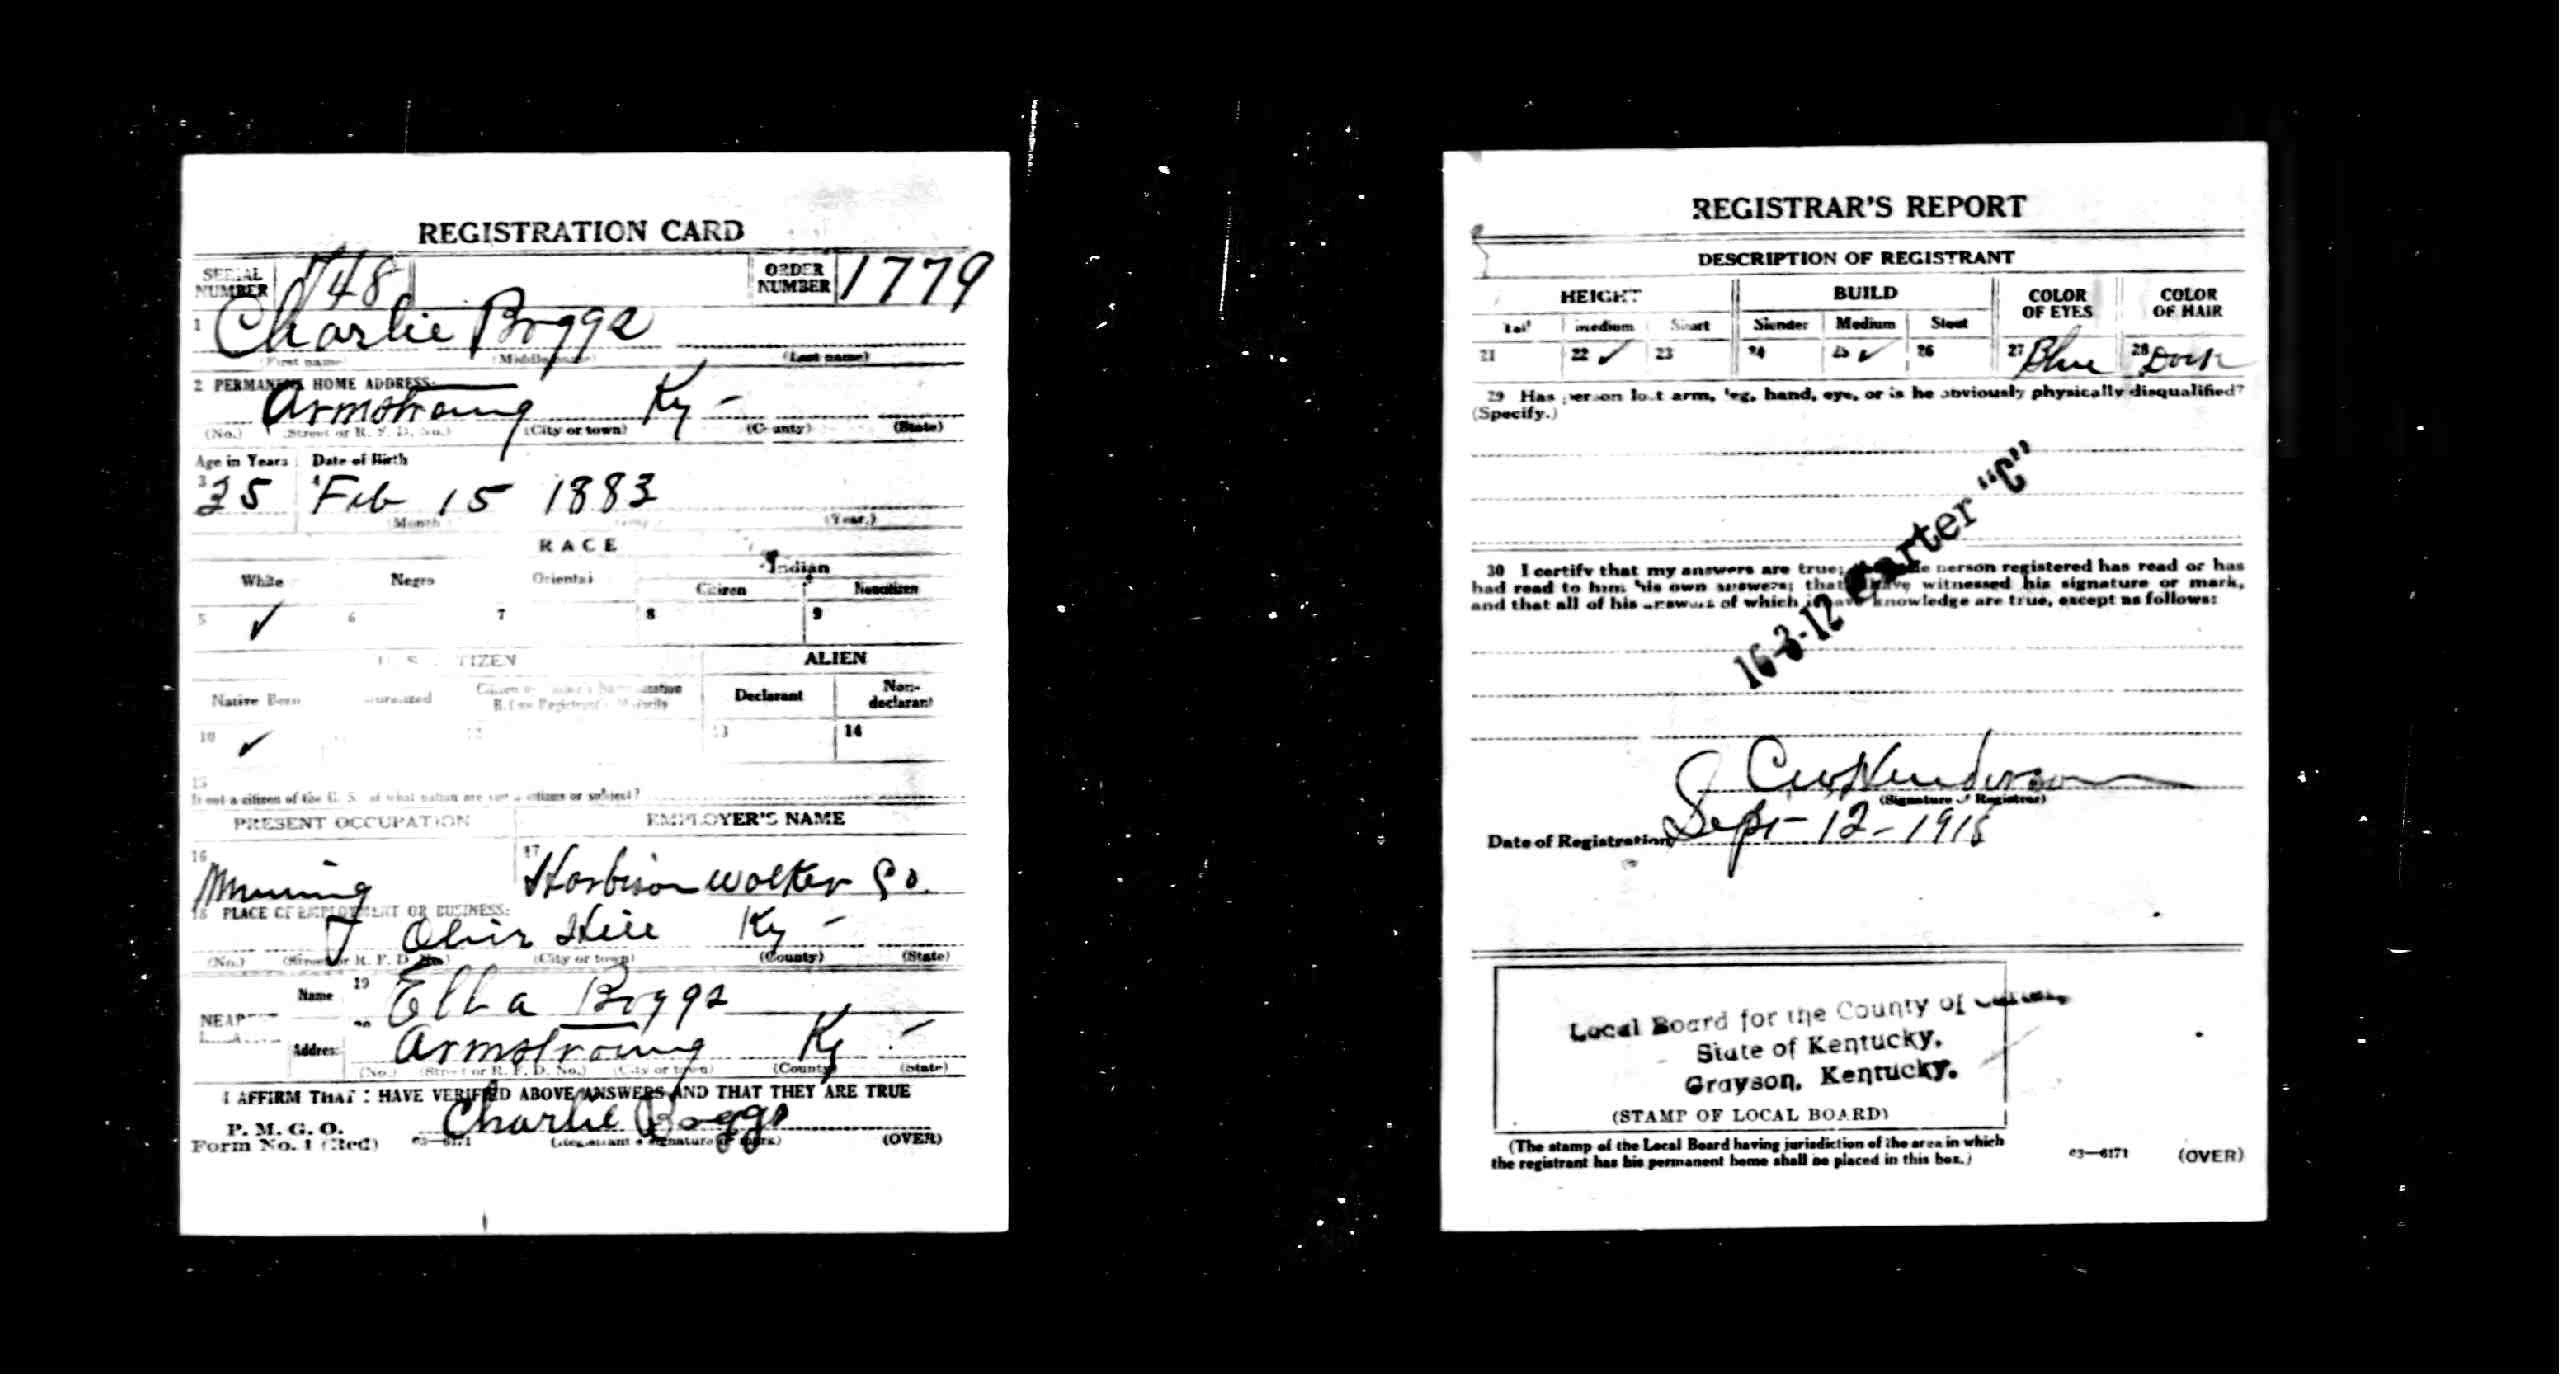 REGISTRATION CARD
SERIAL NUMBER 748 ORDER NUMBER 1779
1 Charlie Boggs
(First name) (Middle name) (Last name)
2 PERMANENT HOME ADDRESS:
Armstrong Ky -
(No.) (Street or R. F. D. No.) (City or town) (County) (State)
Age in Years Date of Birth
3 35 4 Feb 15 1883
(Month) (Year.)
RACE
White Negro Oriental Indian
Citizen Noncitizen
5 ✓ 6 7 8 9
U. S. CITIZEN ALIEN
Native Born Naturalized Citizen by Father's Naturalization Before Registrant's Majority Declarant Non-declarant
10 ✓ 12 13 14
15
If not a citizen of the U. S., of what nation are you a citizen or subject?
PRESENT OCCUPATION EMPLOYER'S NAME
16 Mining 17 Harbison Walker Co.
18 PLACE OF EMPLOYMENT OR BUSINESS:
Olive Hill Ky -
(No.) (Street or R. F. D. No.) (City or town) (County) (State)
Name 19 Ella Boggs
NEAREST
Address 20 Armstrong Ky -
(No.) (Street or R. F. D. No.) (City or town) (County) (State)
I AFFIRM THAT I HAVE VERIFIED ABOVE ANSWERS AND THAT THEY ARE TRUE
P. M. G. O.
Form No. 1 (Red) 03—6171 Charlie Boggs (Registrant's signature or mark) (OVER)
REGISTRAR'S REPORT
DESCRIPTION OF REGISTRANT
HEIGHT BUILD COLOR OF EYES COLOR OF HAIR
Tall Medium Short Slender Medium Stout
21 22 ✓ 23 24 25 ✓ 26 27 Blue 28 Dark
29 Has person lost arm, leg, hand, eye, or is he obviously physically disqualified?
(Specify.)
16-3-12 Carter "C"
30 I certify that my answers are true; that the person registered has read or has
had read to him his own answers; that I have witnessed his signature or mark,
and that all of his answers of which I have knowledge are true, except as follows:
C W Henderson
(Signature of Registrar)
Date of Registration Sept - 12 - 1918
Local Board for the County of Carter,
State of Kentucky,
Grayson, Kentucky.
(STAMP OF LOCAL BOARD)
(The stamp of the Local Board having jurisdiction of the area in which
the registrant has his permanent home shall be placed in this box.)
03—6171 (OVER)